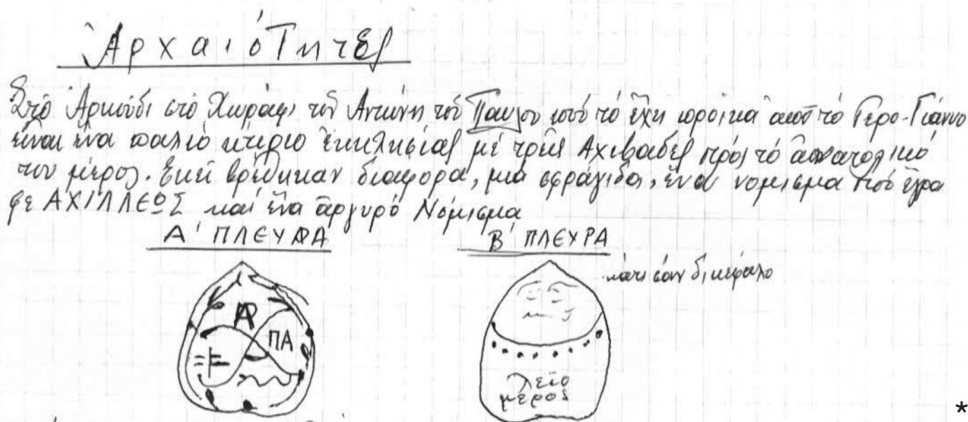 Ἀρχαιότητες
Στό Ἀρκούδι στό Χωράφι τοῦ Αντώνη τοῦ Παυλου πού τό ἔχη προικα από τό Γερο-Γιάννο
εἶναι ἕνα παλιό κτίριο ἐκκλησίας μέ τρεῖς Αχιβαδες πρός τό ἀνατολικό
του μέρος. Ἐκεῖ βρέθηκαν διαφορα, μια σφραγιδα, ἕνα νομισμα πού ἔγρα
φε ΑΧΙΛΛΕΩΣ και ἕνα ἀργυρό Νόμισμα
Α' ΠΛΕΥΡΑ Β' ΠΛΕΥΡΑ
κατι σαν δικεφαλο
ΠΑ
λεῖο
μερος
*